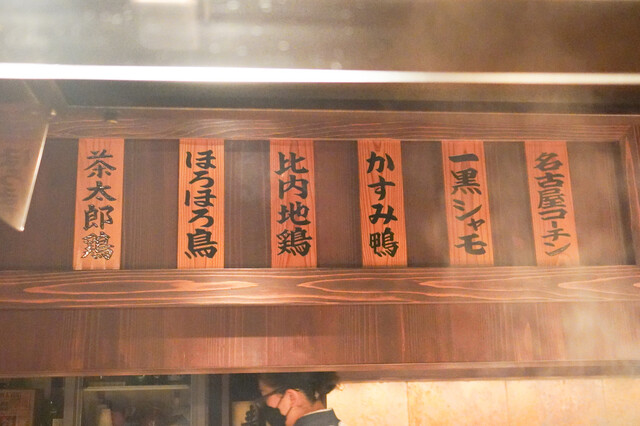 名古屋コーチン
一黒シャモ
かすみ鴨
比内地鶏
ほろほろ鳥
茶太郎鶏